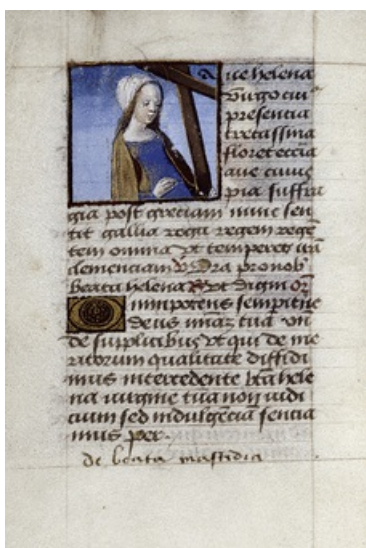 Aue helena
virgo cui
presencia
trecassina
floret eccia
aue cuius
pia suffra
gia post greciam nunc sen
tit gallia roga regem rege
tem omnia vt temperet irā
clemenciam v Ora pro nob
beata helena R vt digni or
mnipotens sempitne
deus miaz tuā on
de supplicibus vt qui de me
ritorum qualitate diffidi
mus intercedente bta hele
na virgine tua non iudi
cium sed indulgēcia sencia
mus per.
de beata mastidia